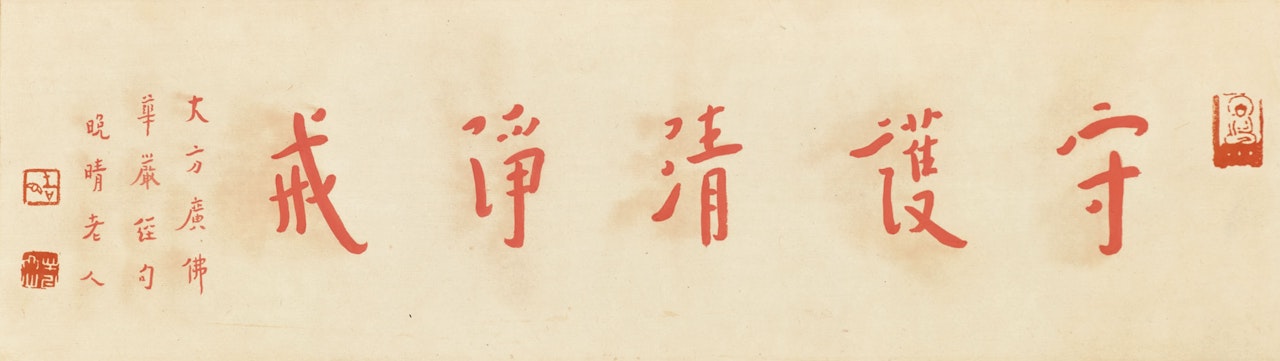 守護清淨戒
大方廣佛
華嚴經句
晚晴老人